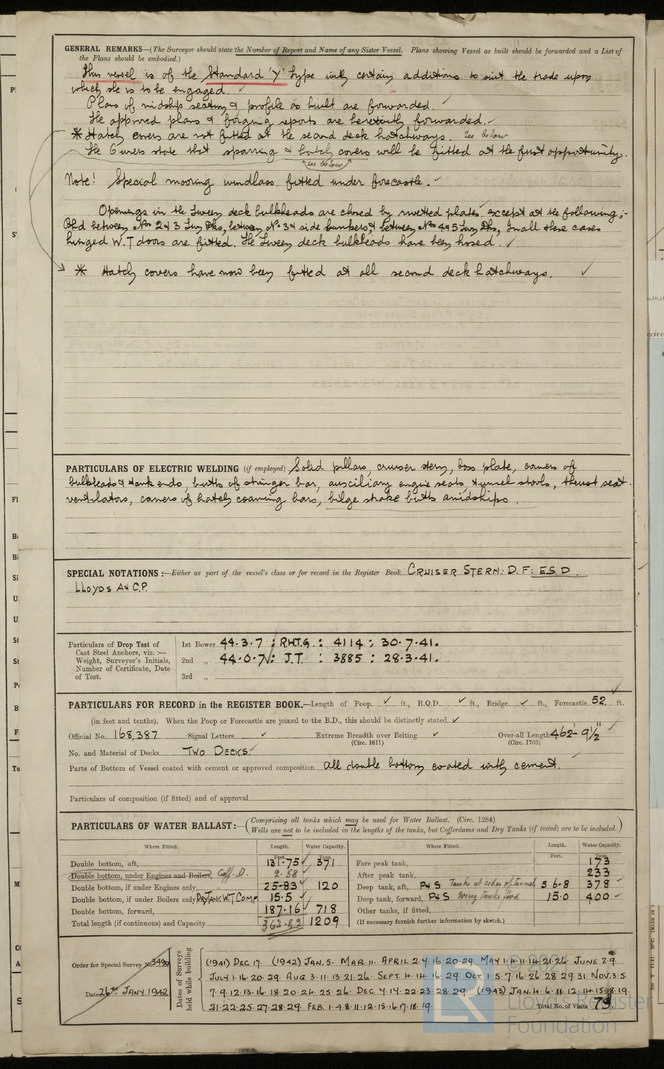 GENERAL REMARKS—(The Surveyor should state the Number of Report and Name of any Sister Vessel. Plans showing Vessel as built should be forwarded and a List of
the Plans should be embodied.)
This vessel is of the Standard 'Y' type with certain additions to suit the trade upon
which she is to be engaged.
Plans of midship section & profile as built are forwarded.
The approved plans & forging reports are herewith forwarded.
* Hatch covers are not fitted at the second deck hatchways. See below
The Owners state that sparring & hatch covers will be fitted at the first opportunity.
see below
Note! Special mooring windlass fitted under forecastle.
Openings in the tween deck bulkheads are closed by riveted plates except at the following:-
between Nos 2 & 3 Twn Dks, between No 3 & side bunkers & between Nos 4 & 5 Twn Dks, In all these cases
hinged W.T doors are fitted. The Tween deck bulkheads have been hosed.
* Hatch covers have now been fitted at all second deck hatchways.
PARTICULARS OF ELECTRIC WELDING (if employed) Solid pillars, cruiser stern, boss plate, corners of
bulkheads & tank ends, butts of stringer bar, auxciliary engine seats, tunnel stools, thrust seat
ventilators, corners of hatch coaming bars, bilge strake butts amidships.
SPECIAL NOTATIONS:—Either as part of the vessel's class or for record in the Register Book CRUISER STERN: D.F: E.S.D.
LLOYDS A & C.P.
Particulars of Drop Test of
Cast Steel Anchors, viz.:—
Weight, Surveyor's Initials,
Number of Certificate, Date
of Test.
1st Bower 44.3.7 : R.H.T.G. : 4114 : 30.7.41.
2nd ,, 44.0.7 : J.T. : 3885 : 28.3.41.
3rd ,,
PARTICULARS FOR RECORD in the REGISTER BOOK.—Length of Poop ft., R.Q.D. ft., Bridge ft., Forecastle 52 ft.
(in feet and tenths). When the Poop or Forecastle are joined to the B.D., this should be distinctly stated
Official No. 168,387 Signal Letters Extreme Breadth over Belting Over-all Length 462'-9½"
(Circ. 1611) (Circ. 1703)
No. and Material of Decks TWO DECKS
Parts of Bottom of Vessel coated with cement or approved composition all double bottom coated with cement.
Particulars of composition (if fitted) and of approval
PARTICULARS OF WATER BALLAST:—(Comprising all tanks which may be used for Water Ballast. (Circ. 1284)
Wells are not to be included in the lengths of the tanks, but Cofferdams and Dry Tanks (if tested) are to be included.)
Where Fitted. Length. Water Capacity. Where Fitted. Length. Water Capacity.
Double bottom, aft, 131.75 371 Fore peak tank, 173
Double bottom, under Engines and Boilers, Coff. D. 2.58 After peak tank, 233
Double bottom, if under Engines only 25.83 120 Deep tank, aft, P & S Tanks at sides of tunnel 56.8 378
Double bottom, if under Boilers only 15.5 Deep tank, forward, P & S Wing tanks ford 15.0 400
Double bottom, forward, 187.16 718 Other tanks, if fitted,
Total length (if continuous) and Capacity 1209 (If necessary furnish further information by sketch.)
Order for Special Survey No. 5490
Date 26th JANY 1942
Dates of Surveys held while building
(1941) DEC 17. (1942) JAN. 5. MAR. 11. APRIL 2.7.16.20.29. MAY 1.4.11.14.21.26. JUNE 2.9.
JULY 1.16.20.29. AUG 3.11.13.21.26. SEPT. 4.14.16.29. OCT. 1.5.7.16.26.28.29.31. NOV. 3.5
7.9.12.13.16.18.20.24.25.26. DEC 4.14.22.23.28.29. (1943) JAN. 4.6.11.12.14.15.18.19.
21.22.25.27.28.29. FEB. 1.4.8.11.12.15.16.17.18.19. Total No. of Visits 79
Lloyd's Register
Foundation